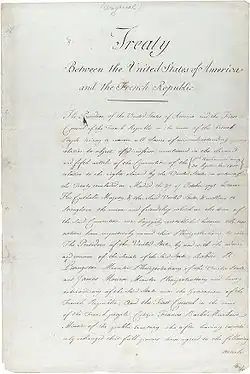 (Original)
Treaty
Between the United States of America
and the French Republic
The President of the United States of America and the First
Consul of the French Republic in the name of the French
People desiring to remove all Source of misunderstanding
relative to objects of discussion mentioned in the Second
and fifth articles of the Convention of the
relative to the rights claimed by the United States in virtue of
the Treaty concluded at Madrid the 27 of October 1795, between
His Catholic Majesty, & the Said United States, & willing to
Strengthen the union and friendship which at the time of
the Said Convention was happily reestablished between the two
nations have respectively named their Plenipotentiaries to wit
The President of the United States, by and with the advice
and consent of the Senate of the Said States; Robert R.
Livingston Minister Plenipotentiary of the United States
and James Monroe Minister Plenipotentiary and Envoy
extraordinary of the Said States near the Government of the
French Republic; And the First Consul in the name
of the French people, Citizen Francis Barbé Marbois
Minister of the public treasury who after having respectively
exchanged their full powers have agreed to the following